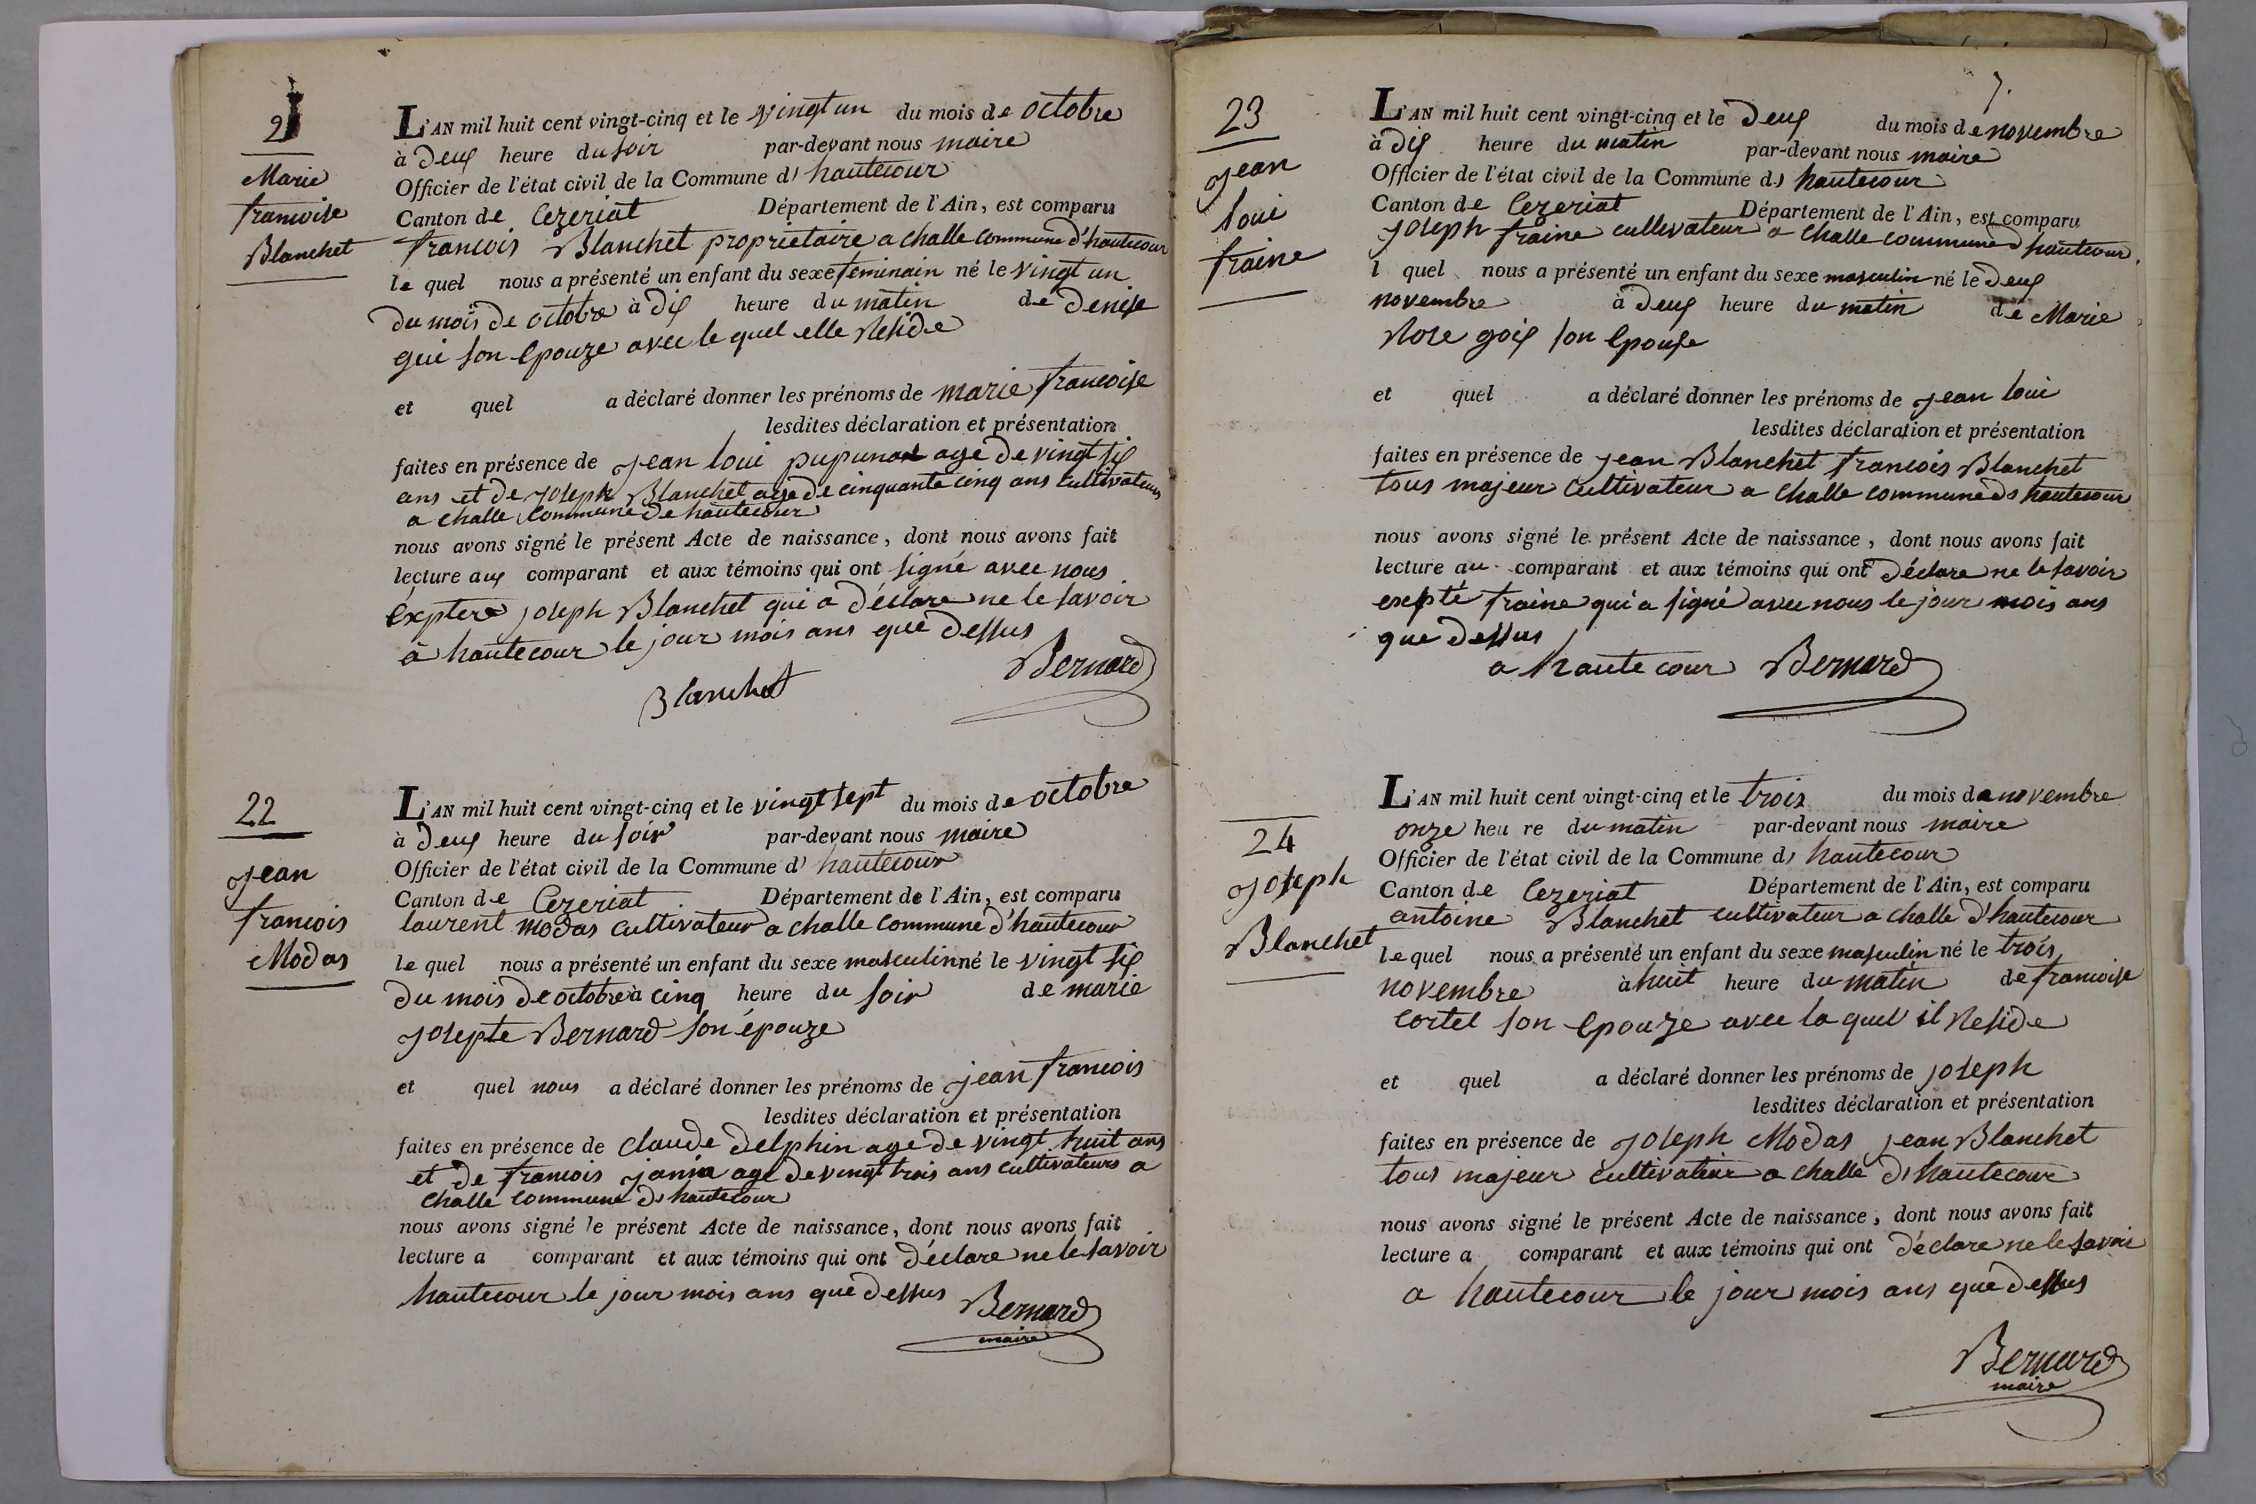 21
Marie
francoise
Blanchet
L'AN mil huit cent vingt-cinq et le vingt un du mois de octobre
à Deux heure du soir par-devant nous maire
Officier de l'état civil de la Commune d' hautecour
Canton de Cezeriat Département de l'Ain, est comparu
francois Blanchet proprietaire a challe commune d'hautecour
le quel nous a présenté un enfant du sexe feminain né le vingt un
du mois de octobre à Dix heure du matin de Denise
gui son Epouze avec le quel elle Reside
et quel a déclaré donner les prénoms de marie francoise
lesdites déclaration et présentation
faites en présence de jean loui pupunat age de vingt six
ans et de joseph Blanchet age de cinquante cinq ans cultivateurs
a challe commune de hautecour
nous avons signé le présent Acte de naissance, dont nous avons fait
lecture aux comparant et aux témoins qui ont signé avec nous
Exptere joseph Blanchet qui a Déclare ne le savoir
à hautecour le jour mois ans que dessus
Blanchet Bernard
22
jean
francois
Modas
L'AN mil huit cent vingt-cinq et le vingt sept du mois de octobre
à Deux heure du soir par-devant nous maire
Officier de l'état civil de la Commune d' hautecour
Canton de Cezeriat Département de l'Ain, est comparu
laurent modas cultivateur a challe commune d'hautecour
le quel nous a présenté un enfant du sexe masculin né le vingt six
du mois de octobre à cinq heure du soir de marie
josepte Bernard son épouze
et quel nous a déclaré donner les prénoms de jean francois
lesdites déclaration et présentation
faites en présence de claude delphin age de vingt huit ans
et de francois janin age de vingt trois ans cultivateurs a
challe commune d hautecour
nous avons signé le présent Acte de naissance, dont nous avons fait
lecture a comparant et aux témoins qui ont déclare ne le savoir
hautecour le jour mois ans que dessus Bernard
maire
7.
23
jean
loui
fraine
L'AN mil huit cent vingt-cinq et le Deux du mois de novembre
à dix heure du matin par-devant nous maire
Officier de l'état civil de la Commune d hautecour
Canton de Cezeriat Département de l'Ain, est comparu
joseph fraine cultivateur a challe commune d hautecour
l quel nous a présenté un enfant du sexe masculin né le Deux
novembre à Deux heure du matin de Marie
Rose goix son Epouse
et quel a déclaré donner les prénoms de jean loui
lesdites déclaration et présentation
faites en présence de jean Blanchet francois Blanchet
tous majeur cultivateur a challe commune d hautecour
nous avons signé le présent Acte de naissance, dont nous avons fait
lecture au comparant et aux témoins qui ont déclare ne le savoir
exepté fraine qui a signé avec nous le jour mois ans
que dessus
a haute cour Bernard
24
joseph
Blanchet
L'AN mil huit cent vingt-cinq et le trois du mois de novembre
onze heu re du matin par-devant nous maire
Officier de l'état civil de la Commune d hautecour
Canton de Cezeriat Département de l'Ain, est comparu
antoine Blanchet cultivateur a challe d'hautecour
le quel nous a présenté un enfant du sexe masculin né le trois
novembre à huit heure du matin de francoise
Cortel son Epouze avec la quel il Reside
et quel a déclaré donner les prénoms de joseph
lesdites déclaration et présentation
faites en présence de joseph Modas jean Blanchet
tous majeur cultivateur a challe d hautecour
nous avons signé le présent Acte de naissance, dont nous avons fait
lecture a comparant et aux témoins qui ont déclare ne le savoir
a hautecour le jour mois ans que dessus
Bernard
maire